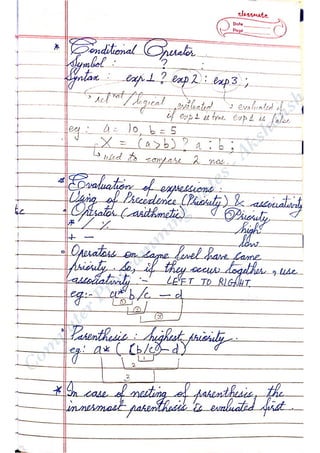 classmate
Date
Page
* Conditional Operator
Symbol : ? :
Syntax : exp 1 ? exp 2 : exp 3 ;
relnal / logical evaluated if exp 1 is true evaluated if exp 1 is false
eg : a = 10, b = 5
X = (a > b) ? a : b ;
used to compare 2 nos.
* Evaluation of expressions :
Using of Precedence (Priority) & associativity
• Operator (arithmetic) Priority
* / % high
+ - low
• Operators on same level have same
priority So, if they occur together, use
associativity :- LEFT TO RIGHT.
eg:- a * b / c - d
① ② ③
• Parenthesis : highest priority.
eg: a * ( (b/c) - d )
1
2
3
* In case of nesting of parenthesis, the
innermost parenthesis is evaluated first.